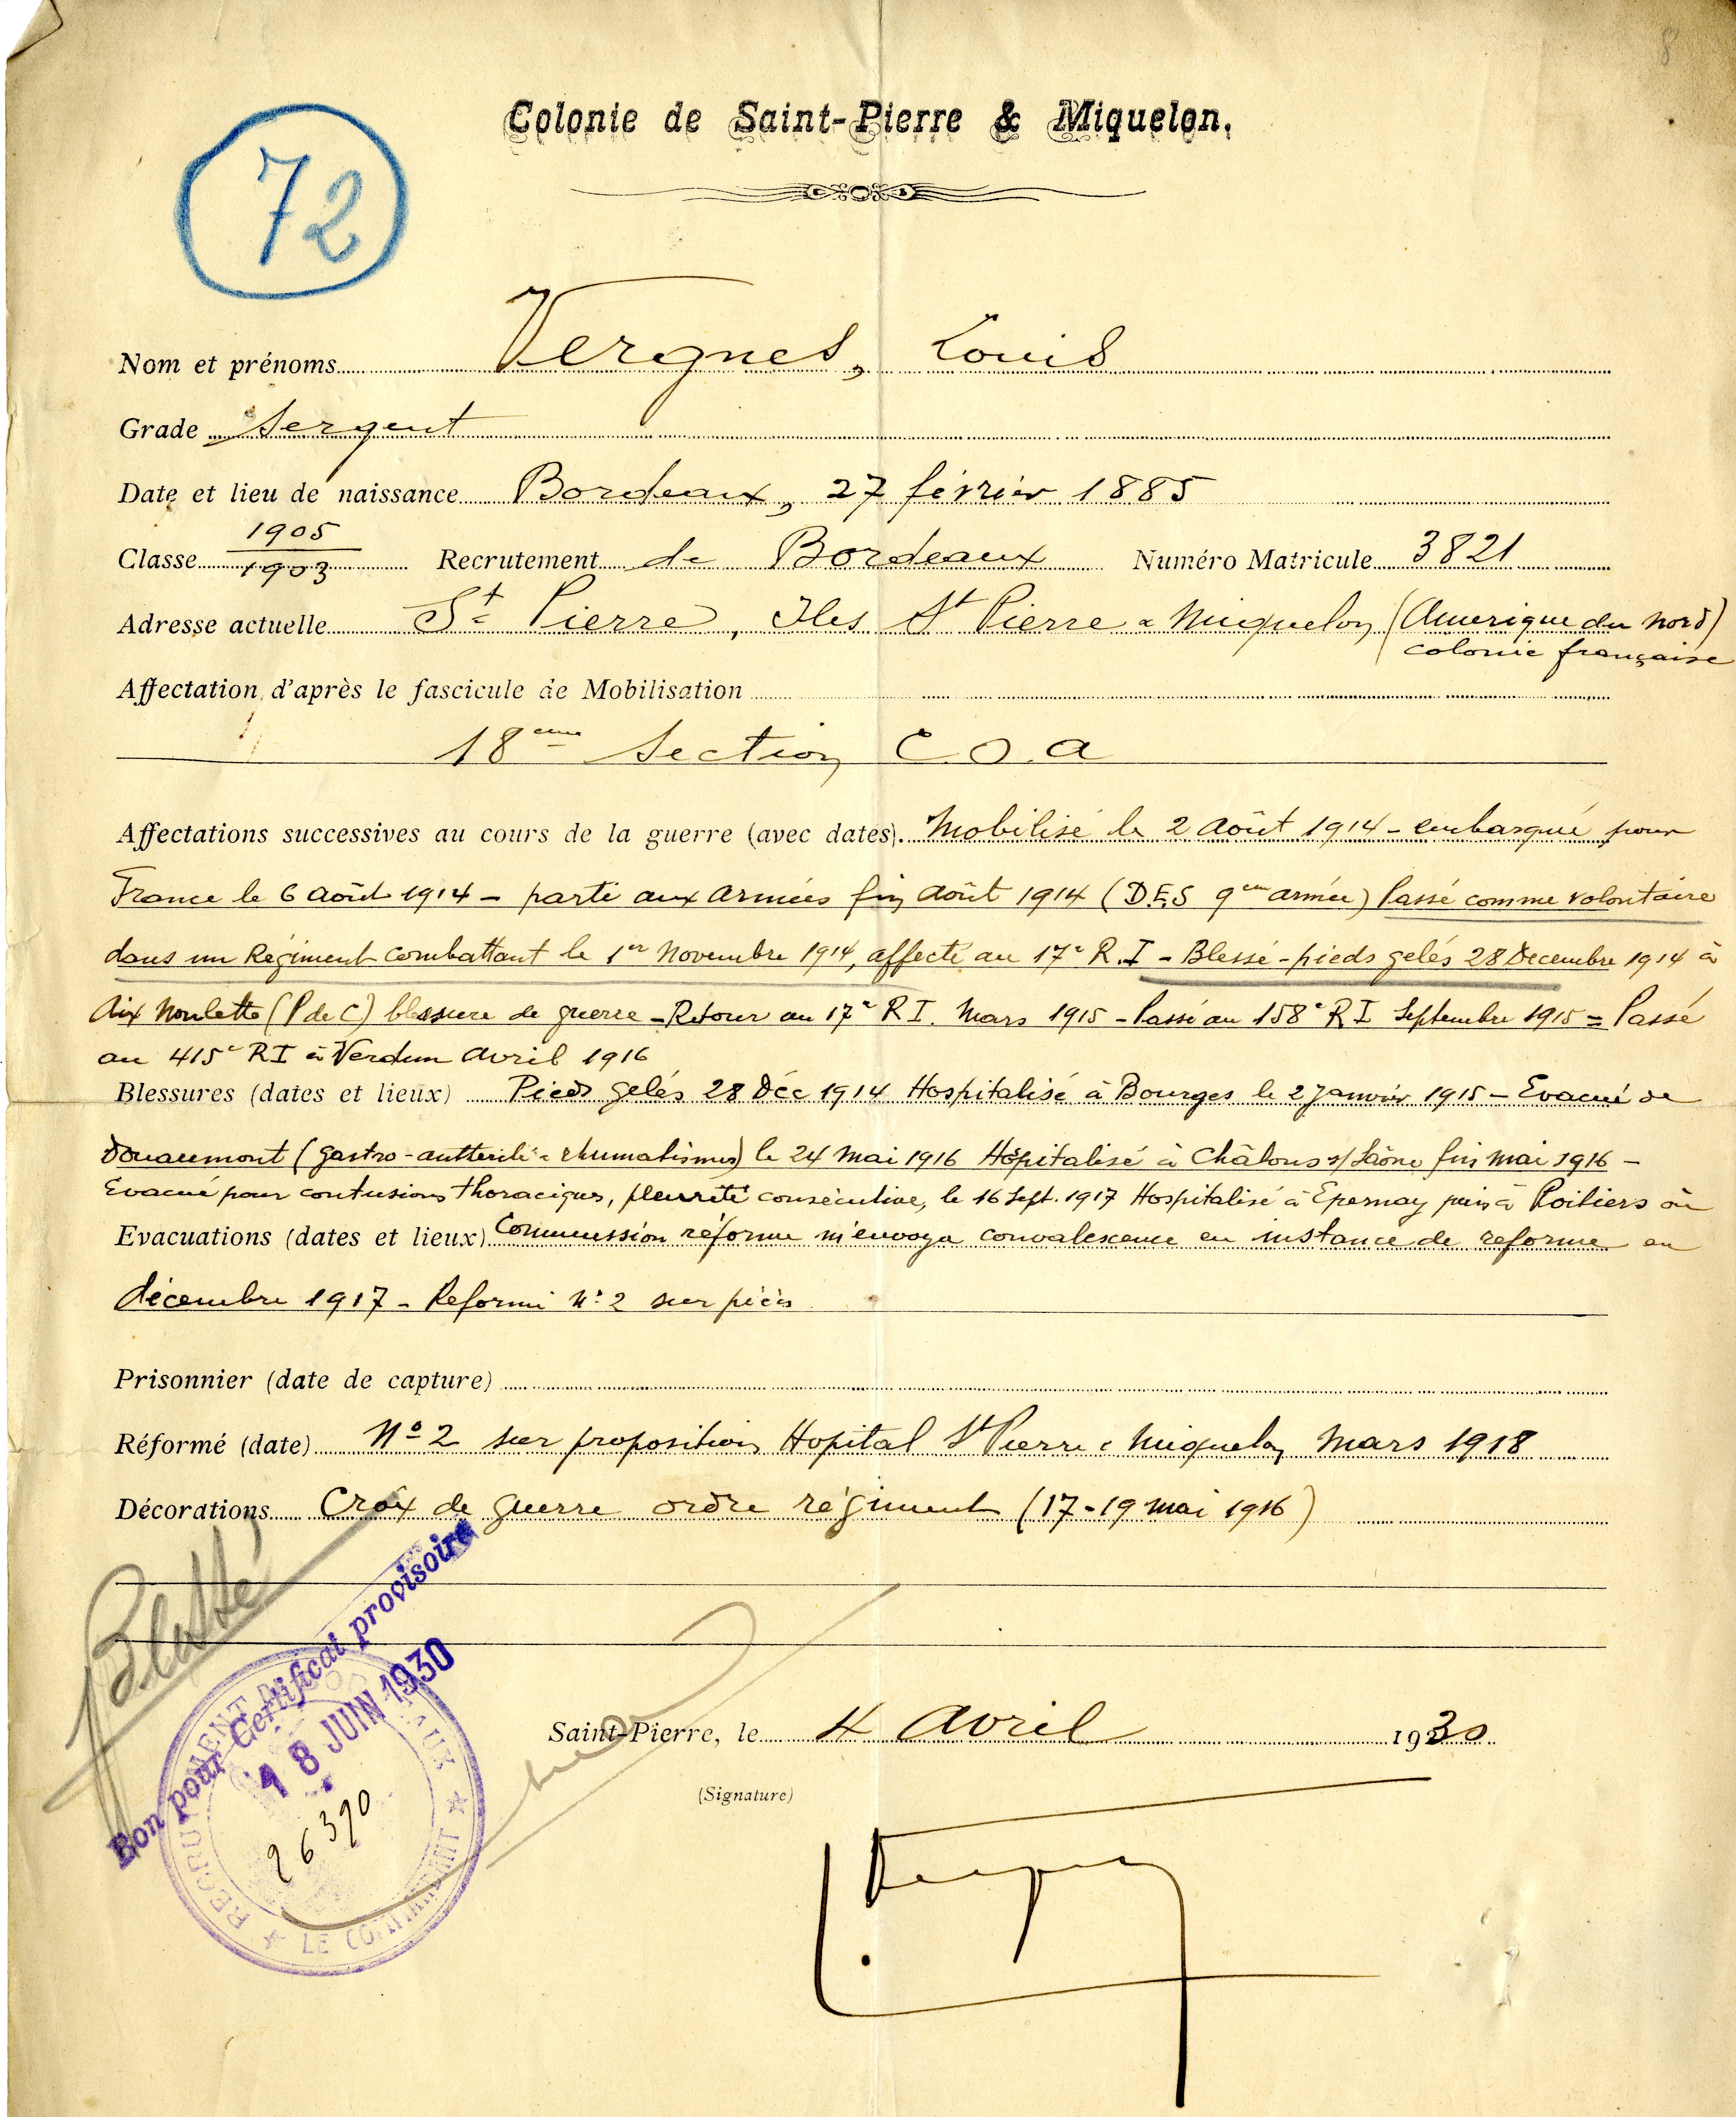 8
Colonie de Saint-Pierre & Miquelon.
72
Nom et prénoms Vergnes, Louis
Grade Sergent
Date et lieu de naissance Bordeaux, 27 février 1885
1905
Classe 1903 Recrutement de Bordeaux Numéro Matricule 3821
Adresse actuelle St Pierre, Iles St Pierre & Miquelon (Amerique du Nord)
colonie française
Affectation d'après le fascicule de Mobilisation
18eme Section C.O.A
Affectations successives au cours de la guerre (avec dates). Mobilisé le 2 Août 1914 - embarqué pour
France le 6 Août 1914 - parti aux Armées fin Août 1914 (D.E.S 9em armée) Passé comme volontaire
dans un Régiment combattant le 1er Novembre 1914, affecté au 17e R.I - Blessé - pieds gelés 28 Decembre 1914 à
Aix Noulette (P de C) blessure de guerre - Retour au 17e R I. Mars 1915 - Passé au 158e R I Septembre 1915 = Passé
au 415e R I à Verdun Avril 1916
Blessures (dates et lieux) Pieds gelés 28 Déc 1914 Hospitalisé à Bourges le 2 Janvier 1915 - Evacué de
Douaumont (gastro- & rhumatismes) le 24 Mai 1916 Hôpitalisé à Châlons s/ Saône fin Mai 1916 -
Evacué pour contusions thoraciques, pleurite consécutive, le 16 Sept. 1917 Hospitalisé à Epernay puis à Poitiers où
Evacuations (dates et lieux) Commission réforme m'envoya convalescence en instance de reforme en
décembre 1917 - Reformé N° 2 sur pièces
Prisonnier (date de capture)
Réformé (date) N° 2 sur proposition Hopital St Pierre & Miquelon Mars 1918
Décorations Croix de guerre ordre régiment (17-19 Mai 1916)
Blessé
Bon pour Certificat provisoire
18 JUIN 1930
RECRUTEMENT DE BORDEAUX
LE COMMANDANT
26390
Saint-Pierre, le 4 Avril 1930
(Signature)